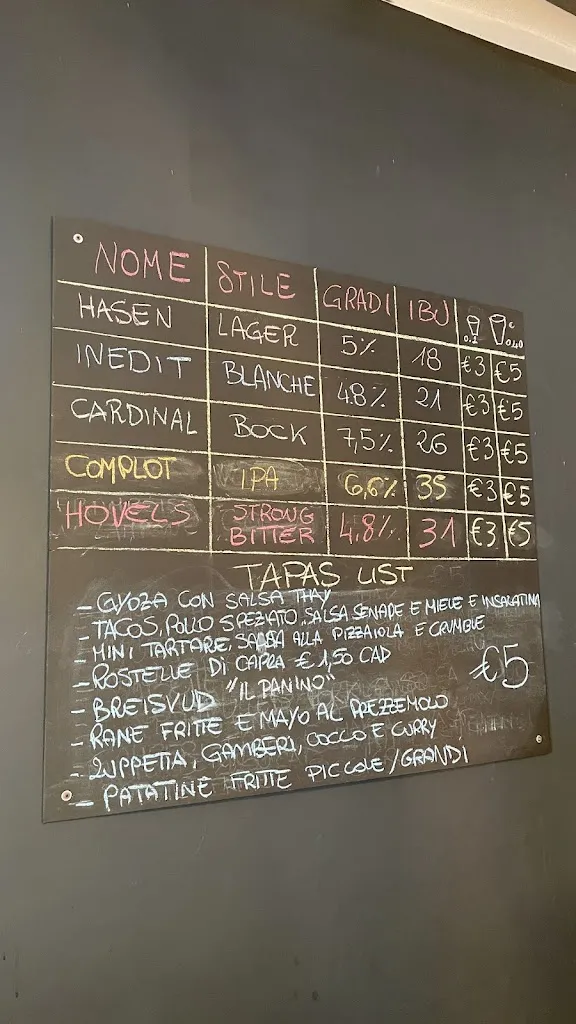 NOME STILE GRADI IBU 0.2 0,40
HASEN LAGER 5% 18 €3 €5
INEDIT BLANCHE 4.8% 21 €3 €5
CARDINAL BOCK 7,5% 26 €3 €5
COMPLOT IPA 6,6% 35 €3 €5
HOVELS STRONG BITTER 4.8% 31 €3 €5
TAPAS LIST
- GYOZA CON SALSA THAY
- TACOS, POLLO SPEZIATO, SALSA SENAPE E MIELE E INSALATINA
- MINI TARTARE, SALSA ALLA PIZZAIOLA E CRUMBLE
- ROSTELLE DI CAPRA € 1,50 CAD
€5
- BREISVUD "IL PANINO"
- RANE FRITTE E MAYO AL PREZZEMOLO
- ZUPPETTA, GAMBERI, COCCO E CURRY
- PATATINE FRITTE PICCOLE/GRANDI